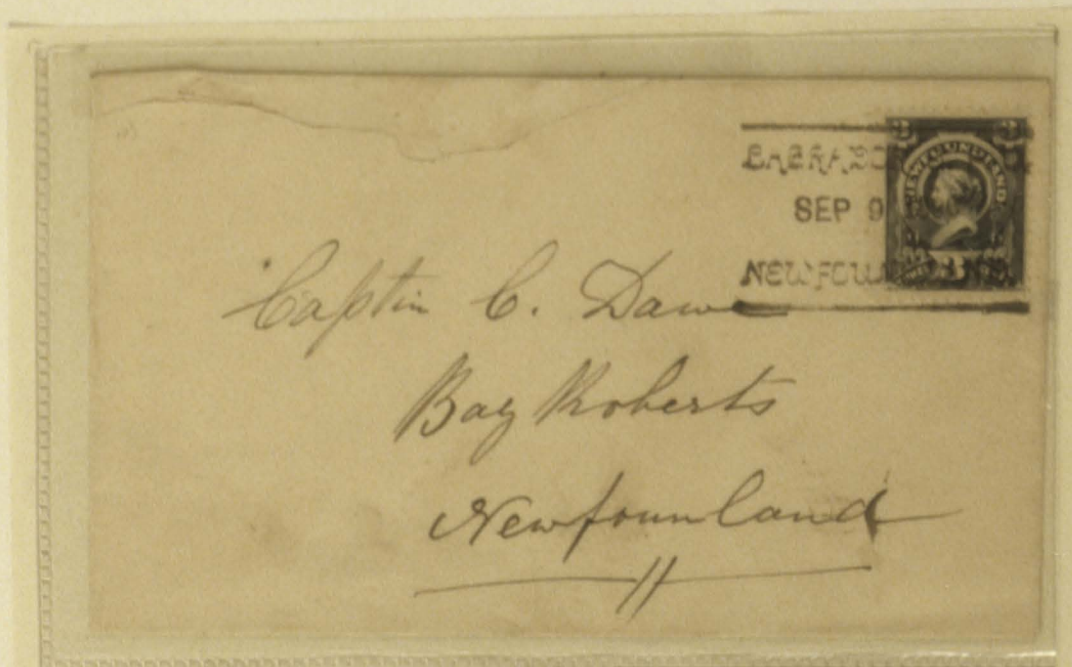 LABRADO
SEP 9
NEWFOUNDLAND.
3 3
NEWFOUNDLAND
Captin C. Dawe
Bay Roberts
Newfounland